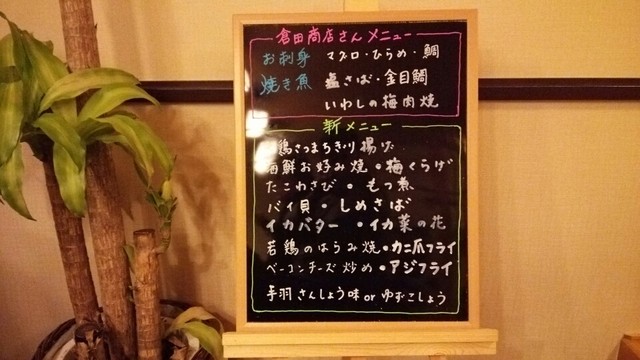 倉田商店さんメニュー
お刺身 マグロ・ひらめ・鯛
焼き魚 塩さば・金目鯛
いわしの梅肉焼
新メニュー
鶏さつまちぎり揚げ
海鮮お好み焼・梅くらげ
たこわさび・もつ煮
バイ貝・しめさば
イカバター・イカ菜の花
若鶏のはらみ焼・カニ爪フライ
ベーコンチーズ炒め・アジフライ
手羽さんしょう味orゆずこしょう